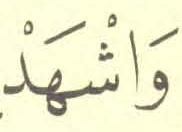 وَاشْهَدْ